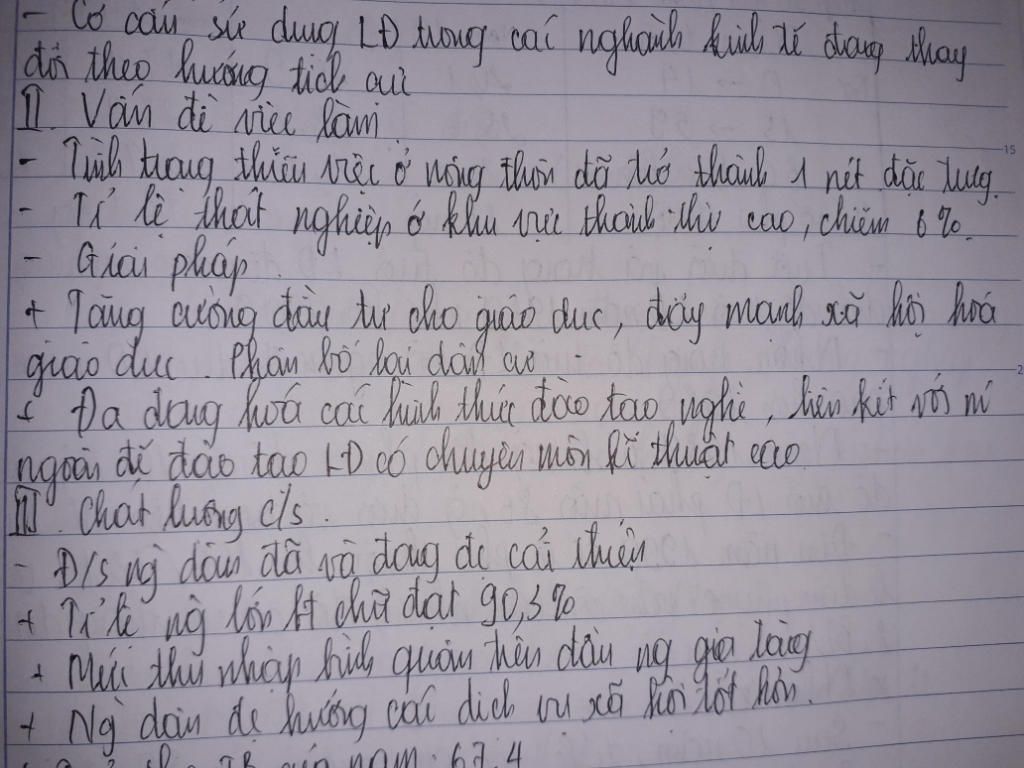 - Cơ cấu sử dụng LĐ trong các nghành kinh tế đang thay
đổi theo hướng tích cực
II Vấn đề việc làm
- Tình trạng thiếu việc ở nông thôn đã trở thành 1 nét đặc trưng.
- Tỉ lệ thất nghiệp ở khu vực thành thị cao, chiếm 6%.
- Giải pháp.
+ Tăng cường đầu tư cho giáo dục, đẩy mạnh xã hội hoá
giáo dục. Phân bố lại dân cư.
+ Đa dạng hoá các hình thức đào tạo nghề, liên kết với n
ngoài để đào tạo LĐ có chuyên môn kĩ thuật cao
III. Chất lượng c/s.
- Đ/s ng dân đã và đang đc cải thiện
+ Tỉ lệ ng lớn chữ đạt 90,3%
+ Mức thu nhập bình quân trên đầu ng gia tăng
+ Ng dân đc hưởng các dịch vụ xã hội tốt hơn.
TB năm: 67.4